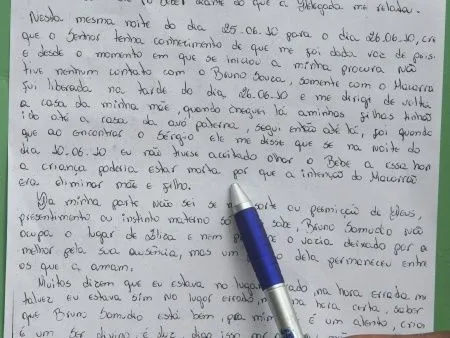 que a Delegada me relatou.
Nesta mesma noite do dia 25.06.10 para o dia 26.06.10, cre
que o Senhor tenha conhecimento de que me foi dada voz de pris
e desde o momento em que se iniciou a minha procura não
tive nenhum contato com o Bruno Souza, somente com o Macarra
fui liberada na tarde do dia 26.06.10 e me dirigi de volta
a casa da minha mãe, quando cheguei lá aminhas filhas tinhão
ido até a casa da avó paterna, segui então até lá, foi quando
que ao encontrar o Sérgio ele me disse que se na noite do
dia 10.06.10 eu não tivese aceitado olhar o Bebe a essa hora
a criança poderia estar morta por que a intenção do Macarrão
era eliminar mãe e filho.
Da minha parte não sei se sorte ou permicção de Deus,
presentimento ou instinto materno só sabe, Bruno Samudio não
ocupa o lugar de Eliza e nem o vazio deixado por a
melhor pela sua ausência, mas um dela permaneceu entre
os que a amam.
Muitos dizem que eu estava no lugar na hora errada m
talvez eu estava sim no lugar errado, na hora certa, saber
que Bruno Samudio está bem, pra mim é um alento,
é um ser divino, é luz, digo isso